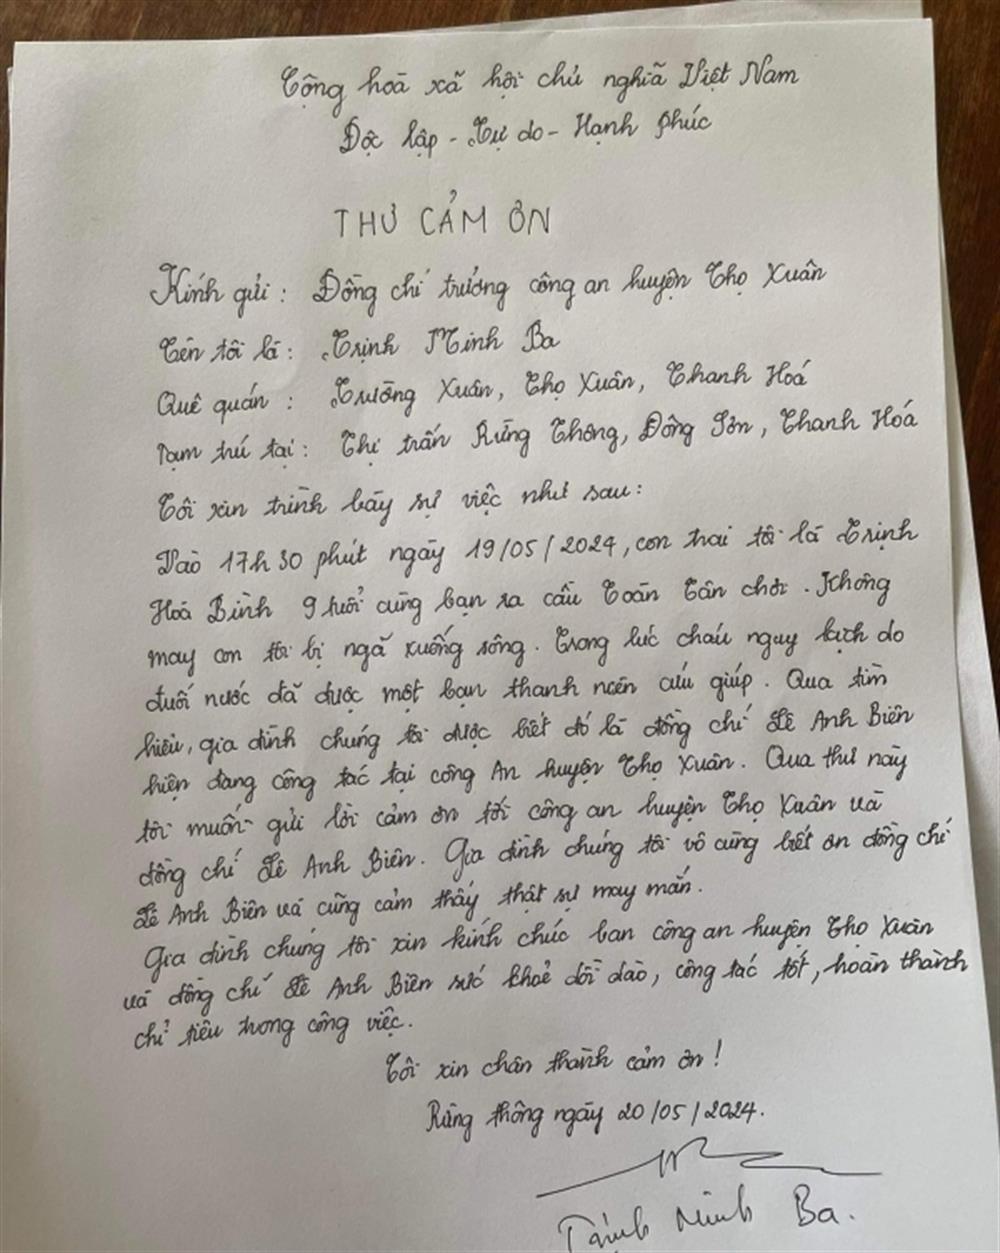 Cộng hoà xã hội chủ nghĩa Việt Nam
Độc lập - Tự do - Hạnh phúc
THƯ CẢM ƠN
Kính gửi : Đồng chí trưởng công an huyện Thọ Xuân
Tên tôi là : Trịnh Minh Ba
Quê quán : Trường Xuân, Thọ Xuân, Thanh Hoá
Tạm trú tại : Thị trấn Rừng Thông, Đông Sơn, Thanh Hoá
Tôi xin trình bày sự việc như sau :
Vào 17h 30 phút ngày 19/05/2024, con trai tôi là Trịnh
Hoà Bình 9 tuổi cùng bạn ra cầu Toàn Tân chơi . Không
may con tôi bị ngã xuống sông . Trong lúc cháu nguy kịch do
đuối nước đã được một bạn thanh niên cứu giúp . Qua tìm
hiểu, gia đình chúng tôi được biết đó là đồng chí Lê Anh Biên
hiện đang công tác tại công An huyện Thọ Xuân . Qua thư này
tôi muốn gửi lời cảm ơn tới công an huyện Thọ Xuân và
đồng chí Lê Anh Biên . Gia đình chúng tôi vô cùng biết ơn đồng chí
Lê Anh Biên và cũng cảm thấy thật sự may mắn .
Gia đình chúng tôi xin kính chúc ban công an huyện Thọ Xuân
và đồng chí Lê Anh Biên sức khoẻ dồi dào, công tác tốt, hoàn thành
chỉ tiêu trong công việc .
Tôi xin chân thành cảm ơn !
Rừng thông ngày 20/05/2024.
Trịnh Minh Ba .